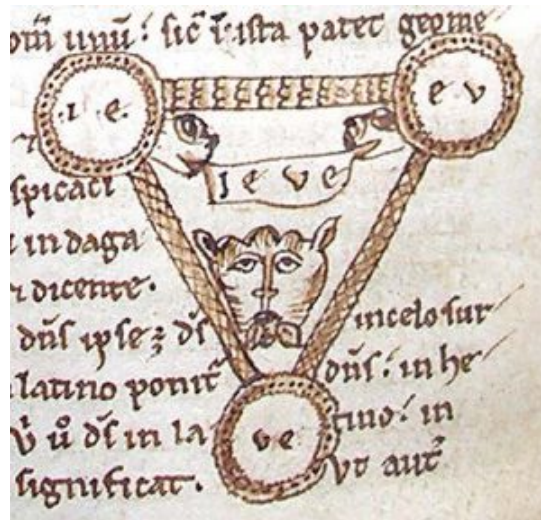 om̄ unū: sic̄ ī ista patet geome
·i· e·
e v
I e v e·
spicaci
in daga
dicente·
dn̄s ipse ds̄
incelo sur
latino ponit᷑
dn̄s: in he
ds̄ in la
tino: in
v e
significat·
vt aut᷑